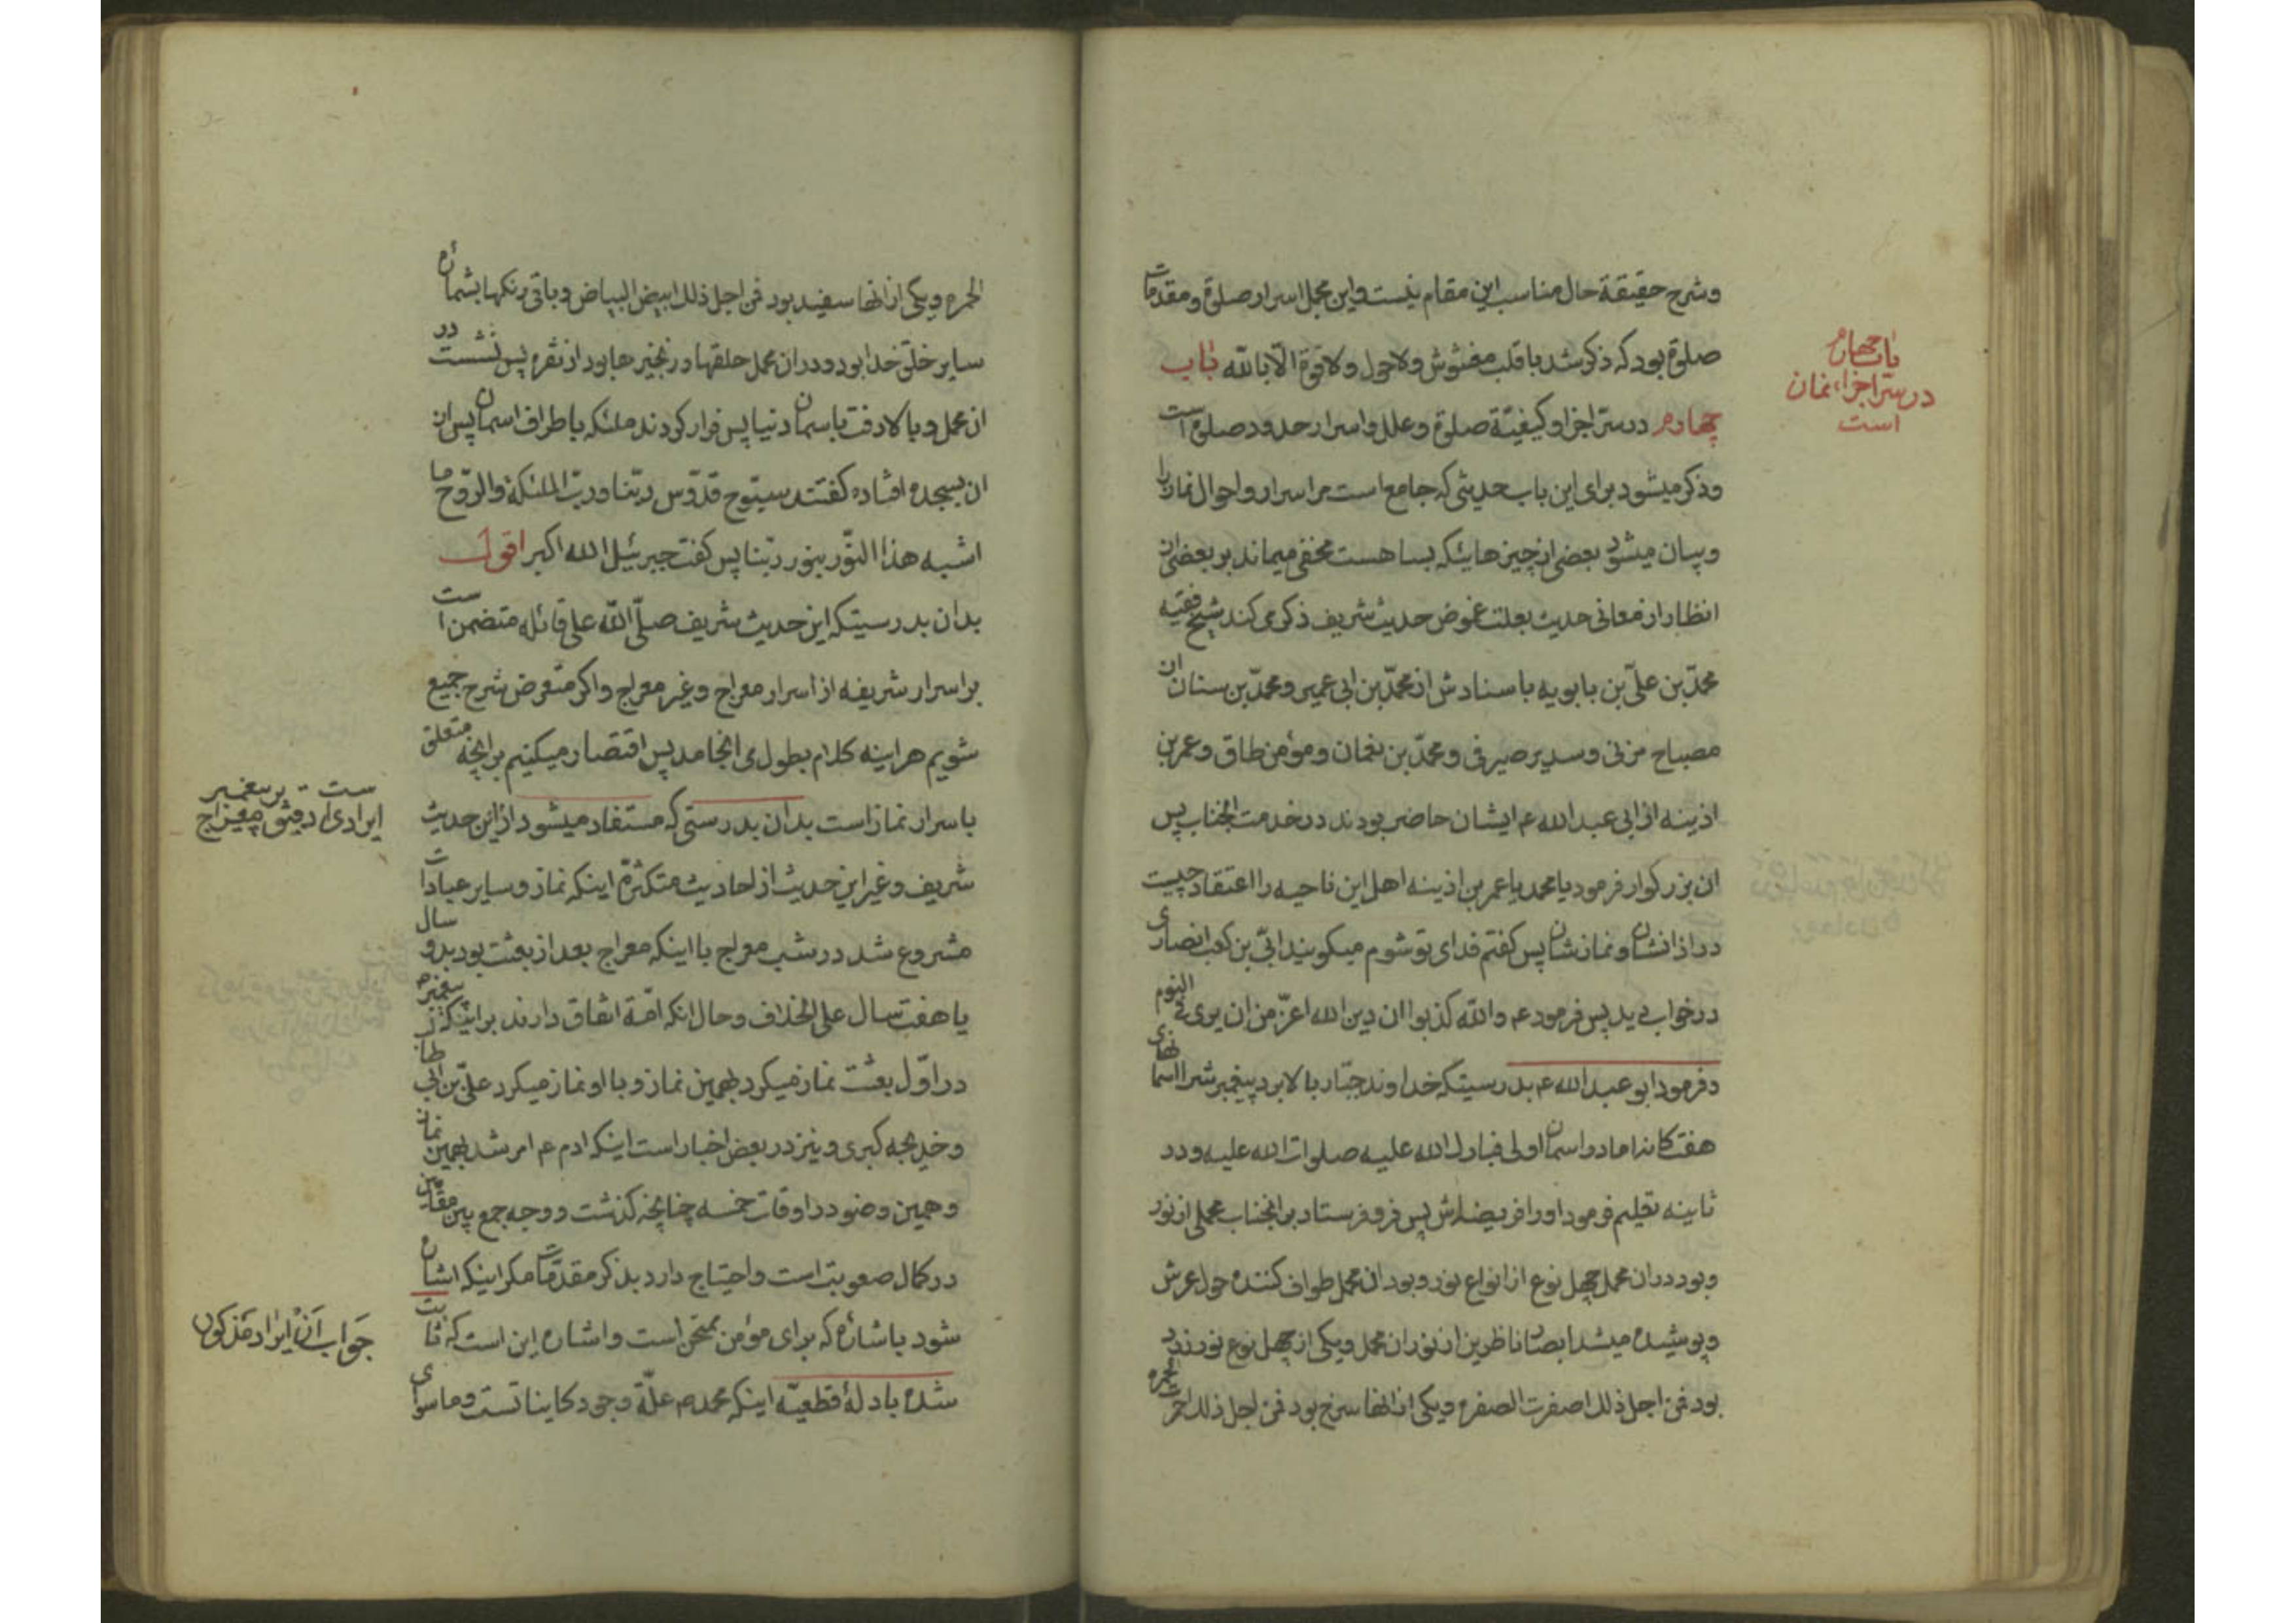 وشرح حقیقة حال مناسب این مقام نیست واین مجمل اسرار صلوة ومقدمات
صلوة بود که ذکر شد با قلب مغشوش ولا حول ولا قوة الّا بالله باب
چهارم در سرّ اجزا وکیفیّة صلوة وعلل واسرار حدود صلوة است
وذکر میشود برای این باب حدیثی که جامع است مر اسرار واحوال نماز را
وبیان میشود بعضی از چیزهائیکه بسا هست مخفی میماند بر بعضی از
انظار از معانی حدیث بعلت غموض حدیث شریف ذکر می کند شیخ فقیه
محمّد بن علیّ بن بابویه باسنادش از محمّد بن ابی عمیر ومحمّد بن سنان از
مصباح مزنی وسدیر صیرفی ومحمّد بن نعمان ومؤمن طاق وعمر بن
اذینه از ابی عبد الله ع ایشان حاضر بودند در خدمت انجناب پس
ان بزرکوار فرمود یا محمد یا عمر بن اذینه اهل این ناحیه را اعتقاد چیست
در اذانشان ونمازشان پس کفتم فدای تو شوم میکویند ابیّ بن کعب انصاری
در خواب دید پس فرمود ع والله کذبوا ان دین الله اعزّ من ان یری فی النوم
دفرمود ابو عبد الله ع بدرسیتکه خداوند جبّار بالا برد پیغمبرش را اسمانهای
هفت کانه اما در اسمان اولی فبارك الله علیه صلوات الله علیه ودر
ثانیه تعلیم فرمود اورا فریضه‌اش پس فرو فرستاد بر انجناب محملی از نور
وبود در ان محمل چهل نوع از انواع نور وبود ان محمل طواف کننده حول عرش
وپوشیده میشد ابصار ناظرین از نور ان محمل ویکی از چهل نوع نور زرد
بود فمن اجل ذلك اصفرت الصفره ویکی از انها سرخ بود فمن اجل ذلك احمرت
باب چهارم
در سرّ اجزاء نماز
است
الحمره ویکی از انها سفید بود فمن اجل ذلك ابیض البیاض وباقی رنکها بشماره
سایر خلق خدا بود ودر ان محمل حلقها وزنجیرها بود از نقره پس نشست در
ان محمل وبالا رفت باسمان دنیا پس فرار کردند ملئکه باطراف اسمان پس از
ان بسجده افتاده کفتند سبّوح قدّوس ربّنا وربّ الملئکة والرّوح ما
اشبه هذا النّور بنور ربّنا پس کفت جبرئیل الله اکبر اقول
بدان بدرسیتکه این حدیث شریف صلّی الله علی قائله متضمن است
بر اسرار شریفه از اسرار معراج وغیر معراج واکر متعرض شرح جمیع
شویم هراینه کلام بطول می انجامد پس اقتصار میکنیم بر انچه متعلق
باسرار نماز است بدان بدرستی که مستفاد میشود از این حدیث
شریف وغیر این حدیث از احادیث متکثرّه اینکه نماز وسایر عبادات
مشروع شد در شب معراج با اینکه معراج بعد از بعثت بود بدو سال
یا هفت سال علی الخلاف وحال انکه امّة اتفاق دارند بر اینکه پیغمبر
در اوّل بعثت نماز میکرد بهمین نماز وبا او نماز میکرد علیّ بن ابی طا
وخدیجه کبری ونیز در بعض اخبار است اینکه ادم ع امر شد بهمین نماز
وهمین وضو در اوقات خمسه چنانچه کذشت ووجه جمع بین مقامین
در کمال صعوبت است واحتیاج دارد بذکر مقدّمات مکر اینکه اشاره
شود باشاره که برای مؤمن ممتحن است واشاره این است که ثابت
شده بادلهٔ قطعیّه اینکه محمد ص علّة وجود کایناتست وماسوای
ایرادی است دقیق بر معراج پیغمبر
جواب از ایراد مذکور